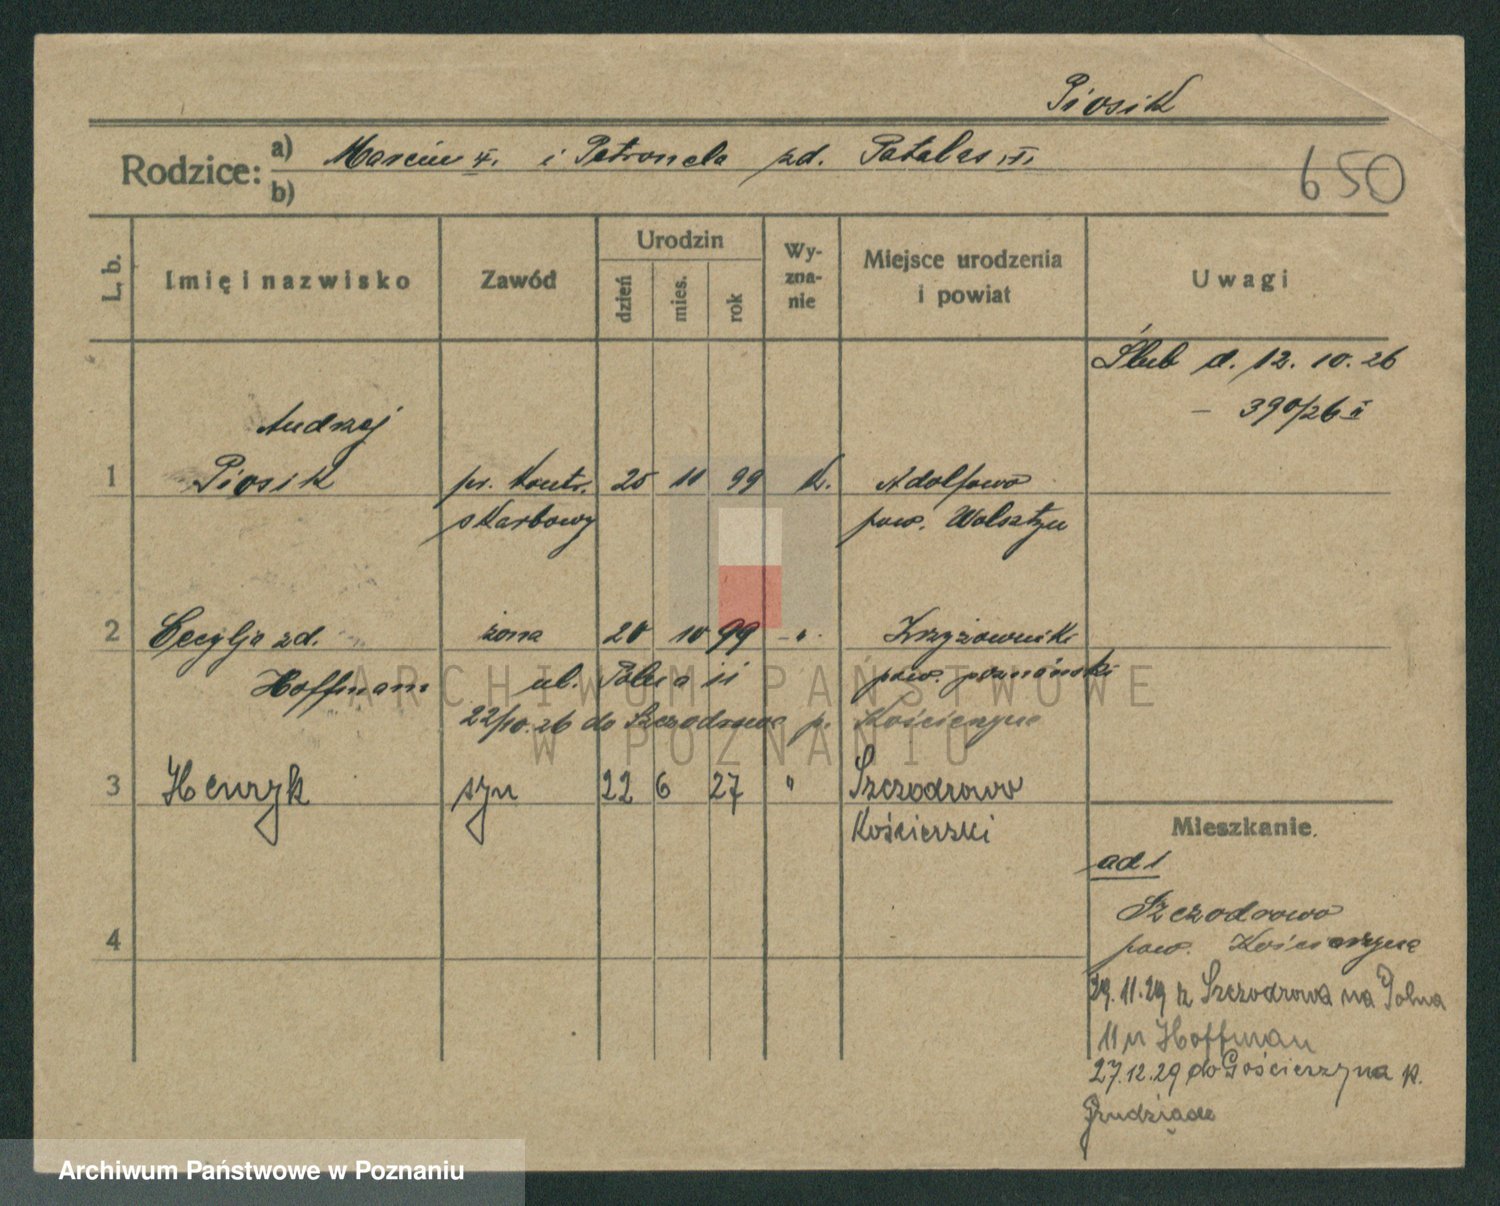 Piosik
Rodzice: a) Marcin i Petronela zd. Patalas
b)
650
L. b.
Imię i nazwisko
Zawód
Urodzin
dzień
mies.
rok
Wy-
zna-
nie
Miejsce urodzenia
i powiat
Uwagi
Ślub d. 12. 10. 26
- 390/26 II
Andrzej
1 Piosik pr. Kontr. 25 11 99 K. Adolfowo
skarbowy pow. Wolsztyn
2 Cecylja zd. żona 20 10 99 -"- Krzyżowniki
Hoffmann ul. Polna 11 pow. poznański
22/10.26 do Szczodrowa p. Kościerzyna
3 Henryk syn 22 6 27 " Szczodrowo
Kościerski
4
Mieszkanie.
ad 1
Szczodrowo
pow. Kościerzyna
29.11.29 z Szczodrowa na Polna
11 u Hoffman
27.12.29 do Gościerzyna p.
Grudziądz
ARCHIWUM PAŃSTWOWE
W POZNANIU
Archiwum Państwowe w Poznaniu